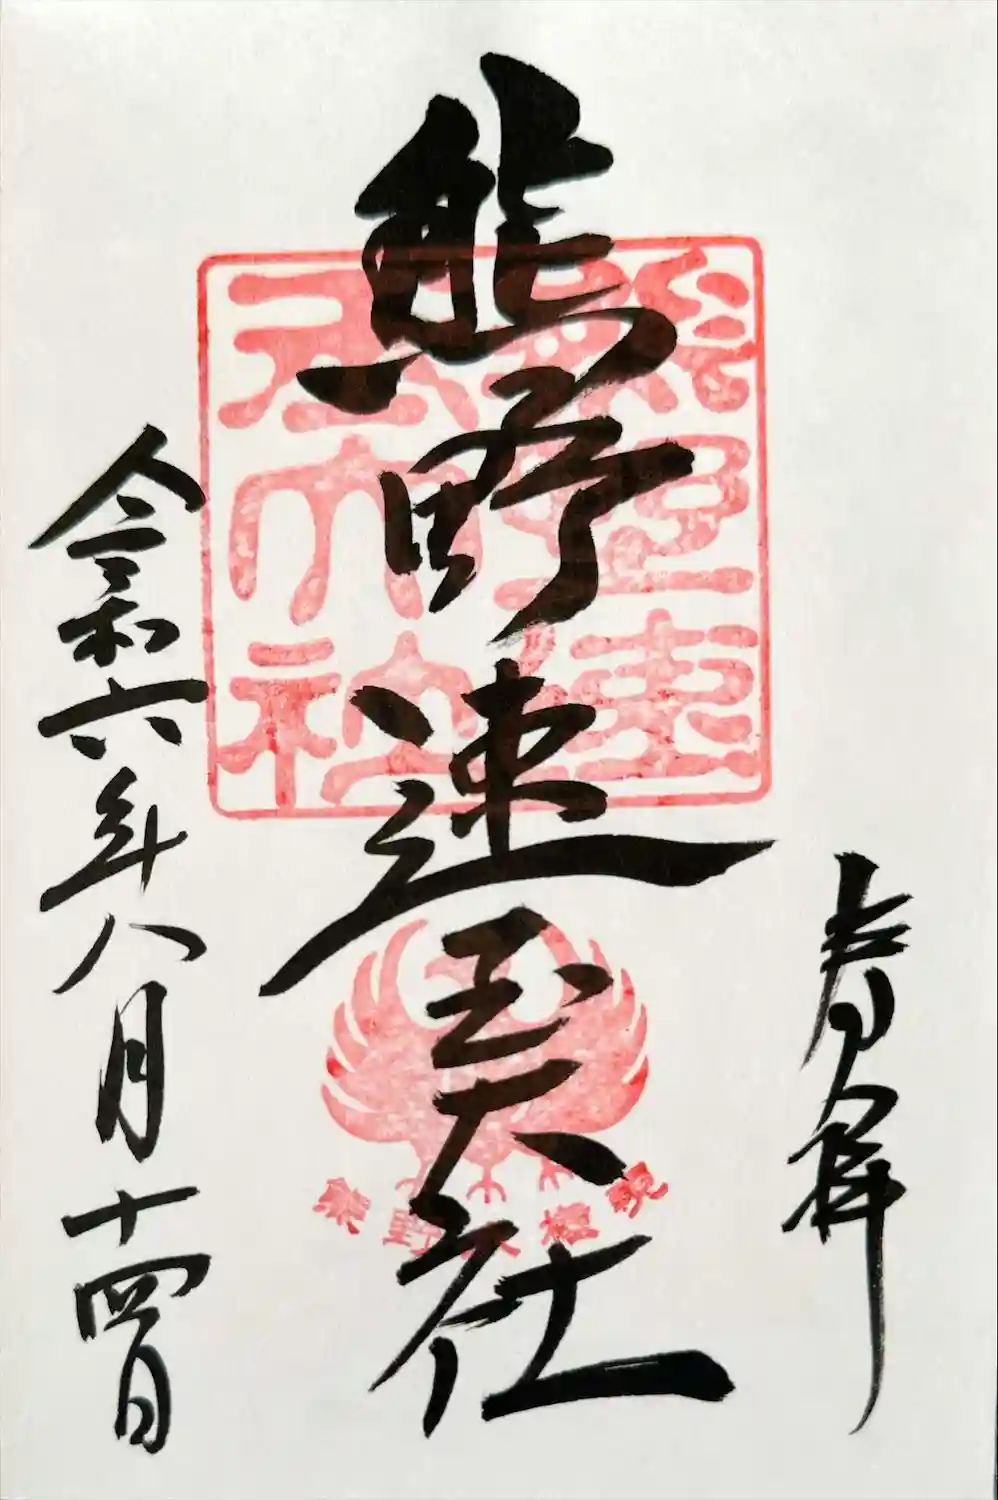 奉拝
熊野速玉大社
熊野速
玉大社
熊野大権現
令和六年八月十四日